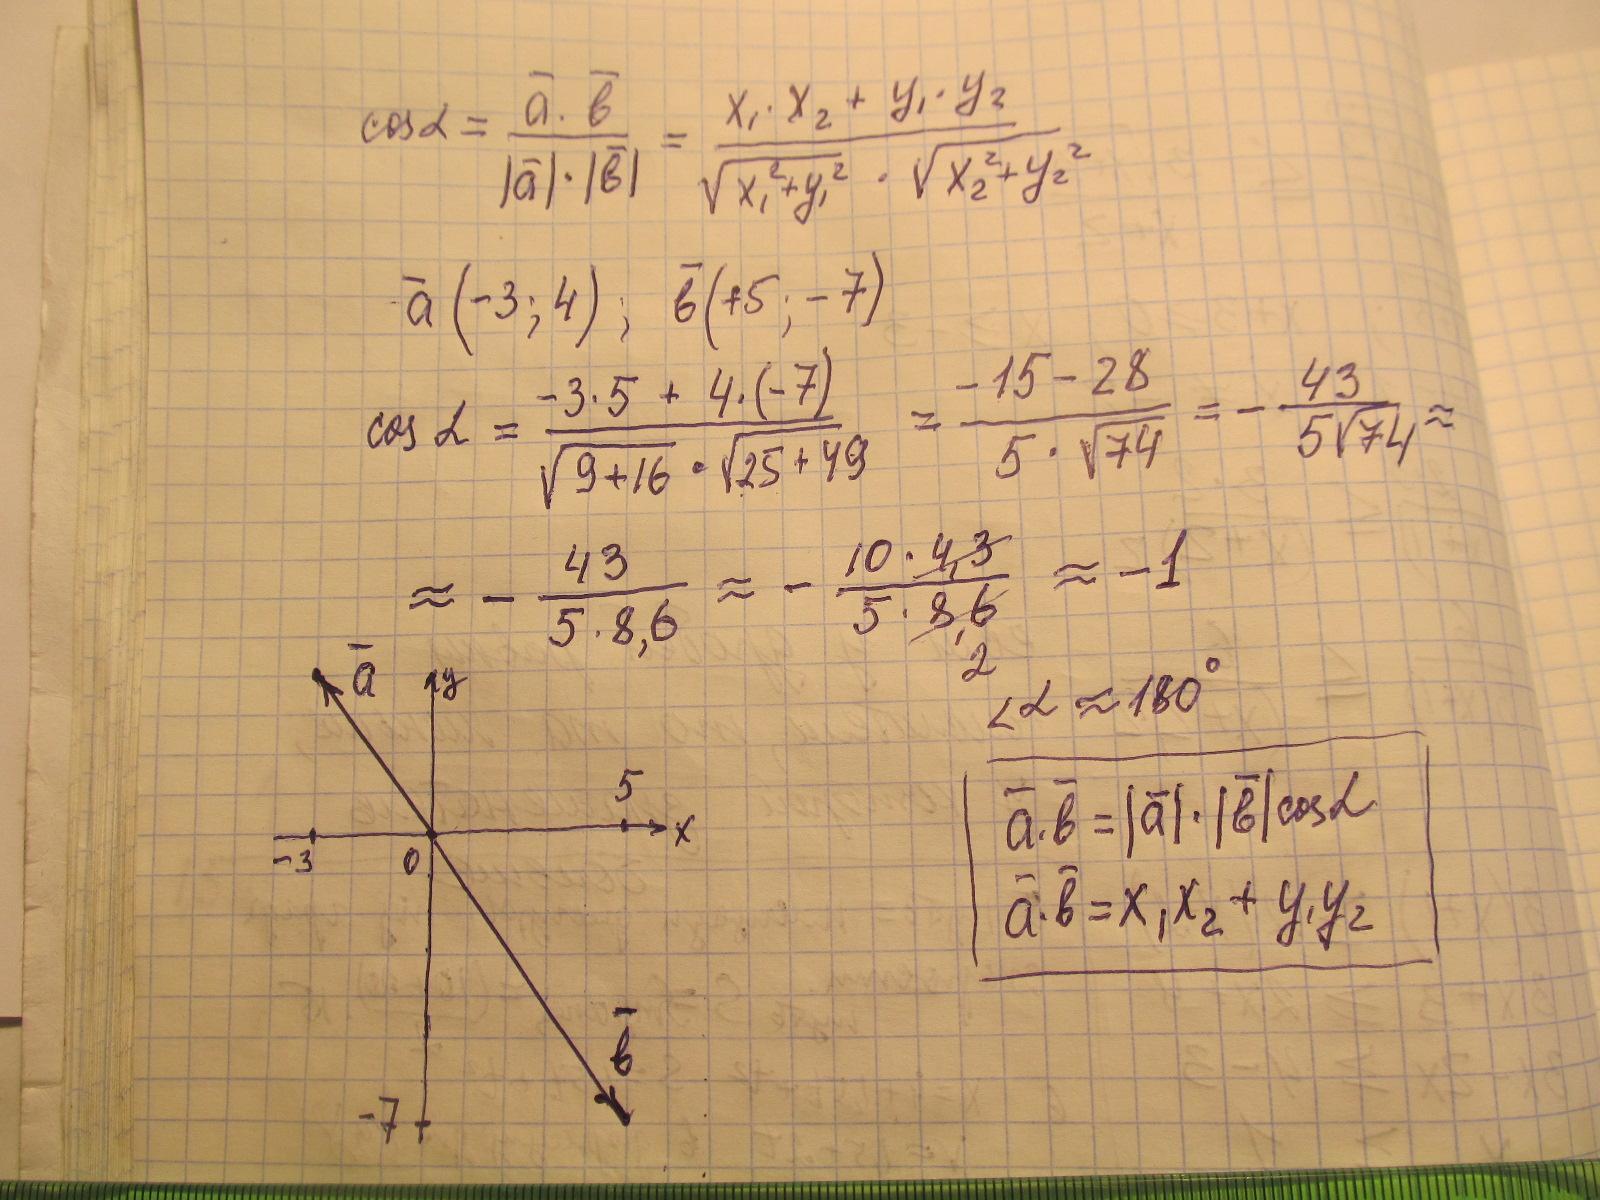 cos α = (a̅ · b̅) / (|a̅| · |b̅|) = (x₁ · x₂ + y₁ · y₂) / (√(x₁² + y₁²) · √(x₂² + y₂²))
a̅ (-3; 4); b̅ (+5; -7)
cos α = (-3·5 + 4·(-7)) / (√(9+16) · √(25+49)) = (-15 - 28) / (5 · √74) = - 43 / (5√74) ≈
≈ - 43 / (5 · 8,6) ≈ - (10 · 4,3) / (5 · 8,6) ≈ -1
2
∠α ≈ 180°
a̅ y
5
-3 0 x
a̅ · b̅ = |a̅| · |b̅| cos α
a̅ · b̅ = x₁x₂ + y₁y₂
b̅
-7